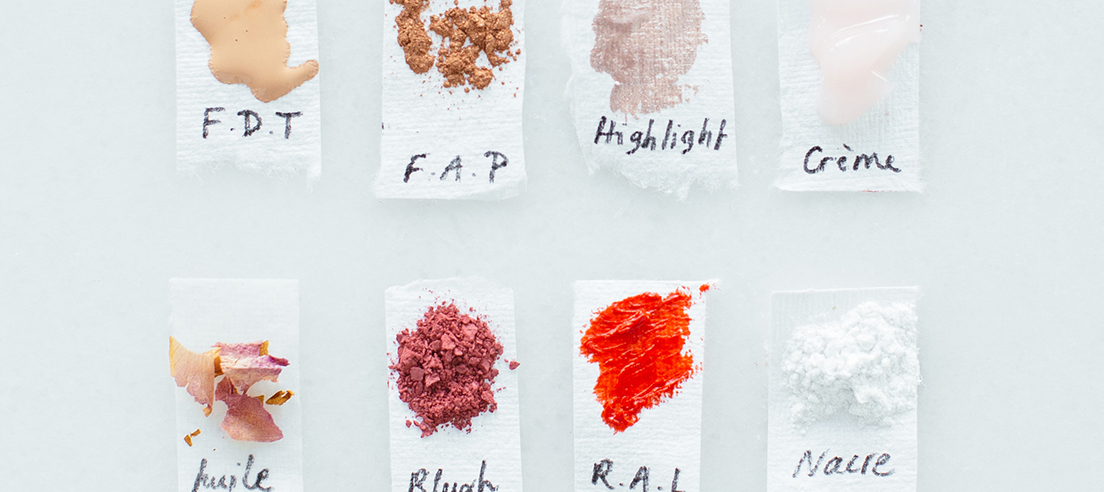 F.D.T
F.A.P
Highlight
Crème
huile
Blush
R.A.L
Nacre